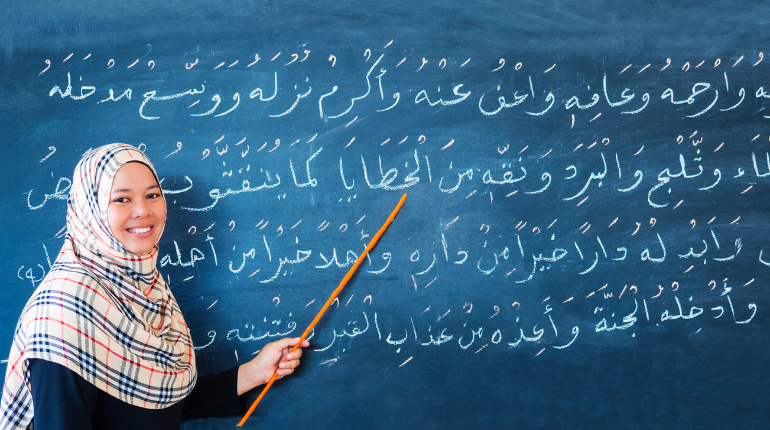 وَارْحَمْهُ وَعَافِهِ وَاعْفُ عَنْهُ وَأَكْرِمْ نُزُلَهُ وَوَسِّعْ مُدْخَلَهُ
وَّثَلْجٍ وَالبَرَدِ وَنَقِّهِ مِنَ الْخَطَايَا كَمَا
وَأَبْدِلْهُ دَارًا خَيْرًا مِنْ دَارِهِ وَأَهْلاً خَيْرًا مِنْ أَهْلِهِ
وَأَدْخِلْهُ الْجَنَّةَ وَأَعِذْهُ مِنْ عَذَابِ القَبْرِ وَفِتْنَتِهِ وَ